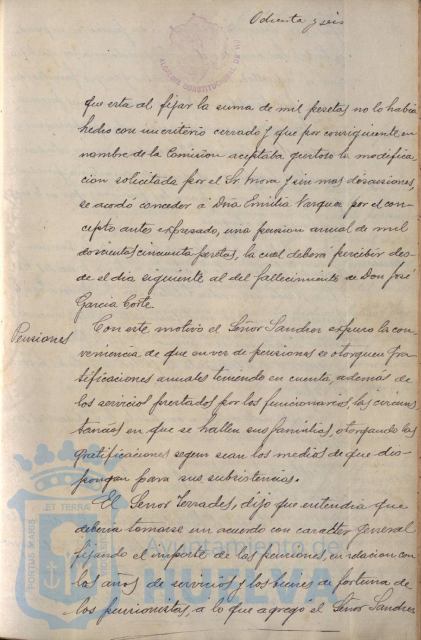 Ochenta y seis
ALCALDIA CONSTITUCIONAL DE
que esta al fijar la suma de mil pesetas no lo habia
hecho con un criterio cerrado y que por consiguiente en
nombre de la Comision aceptaba gustoso la modifica
cion solicitada por el Sr. Mora y sin mas discusiones,
se acordó conceder á Dña Emilia Vazquez por el con-
cepto antes expresado, una pension anual de mil
doscientas cincuenta pesetas, la cual deberá percibir des-
de el dia siguiente al del fallecimiento de Don José
Garcia Corte.
Pensiones
Con este motivo el Señor Sanchez expuso la con
veniencia de que en vez de pensiones se otorguen gra
tificaciones anuales teniendo en cuenta, además de
los servicios prestados por los funcionarios, las circuns
tancias en que se hallen sus familias, otorgando las
gratificaciones segun sean los medios de que dis-
pongan para sus subsistencias.
El Señor Terrades, dijo que entendia que
deberia tomarse un acuerdo con caracter general
fijando el importe de las pensiones, en relacion con
los años de servicios y los bienes de fortuna de
los pensionistas, a lo que agregó el Señor Sanchez
PORTUS MARIS ET TERRAE
Ayuntamiento de
HUELVA